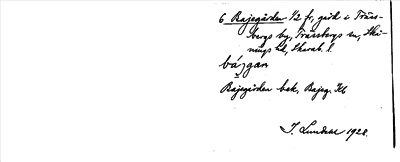 6 Bajegården 1/2 fr, gård i Träss-
bergs by, Trässbergs sn, Skå-
nings hd, Skarab. l.
bá,gan
Bajegården bek, Bajeg. Kb
I. Lundahl 1928.